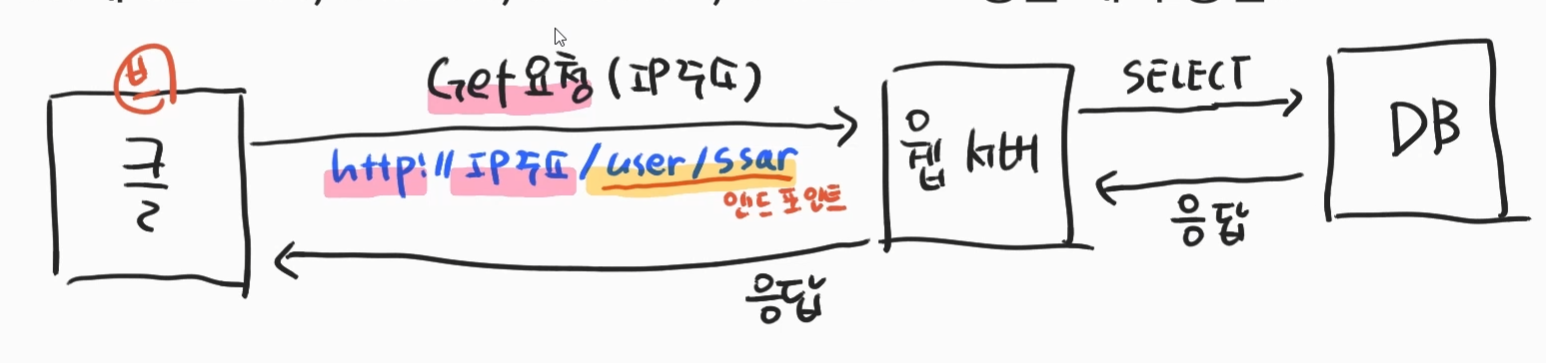 ㅂ
크
ㄹ
Get 요청 (IP주소)
http://IP주소/user/ssar
앤드 포인트
응답
웹 서버
SELECT
응답
DB